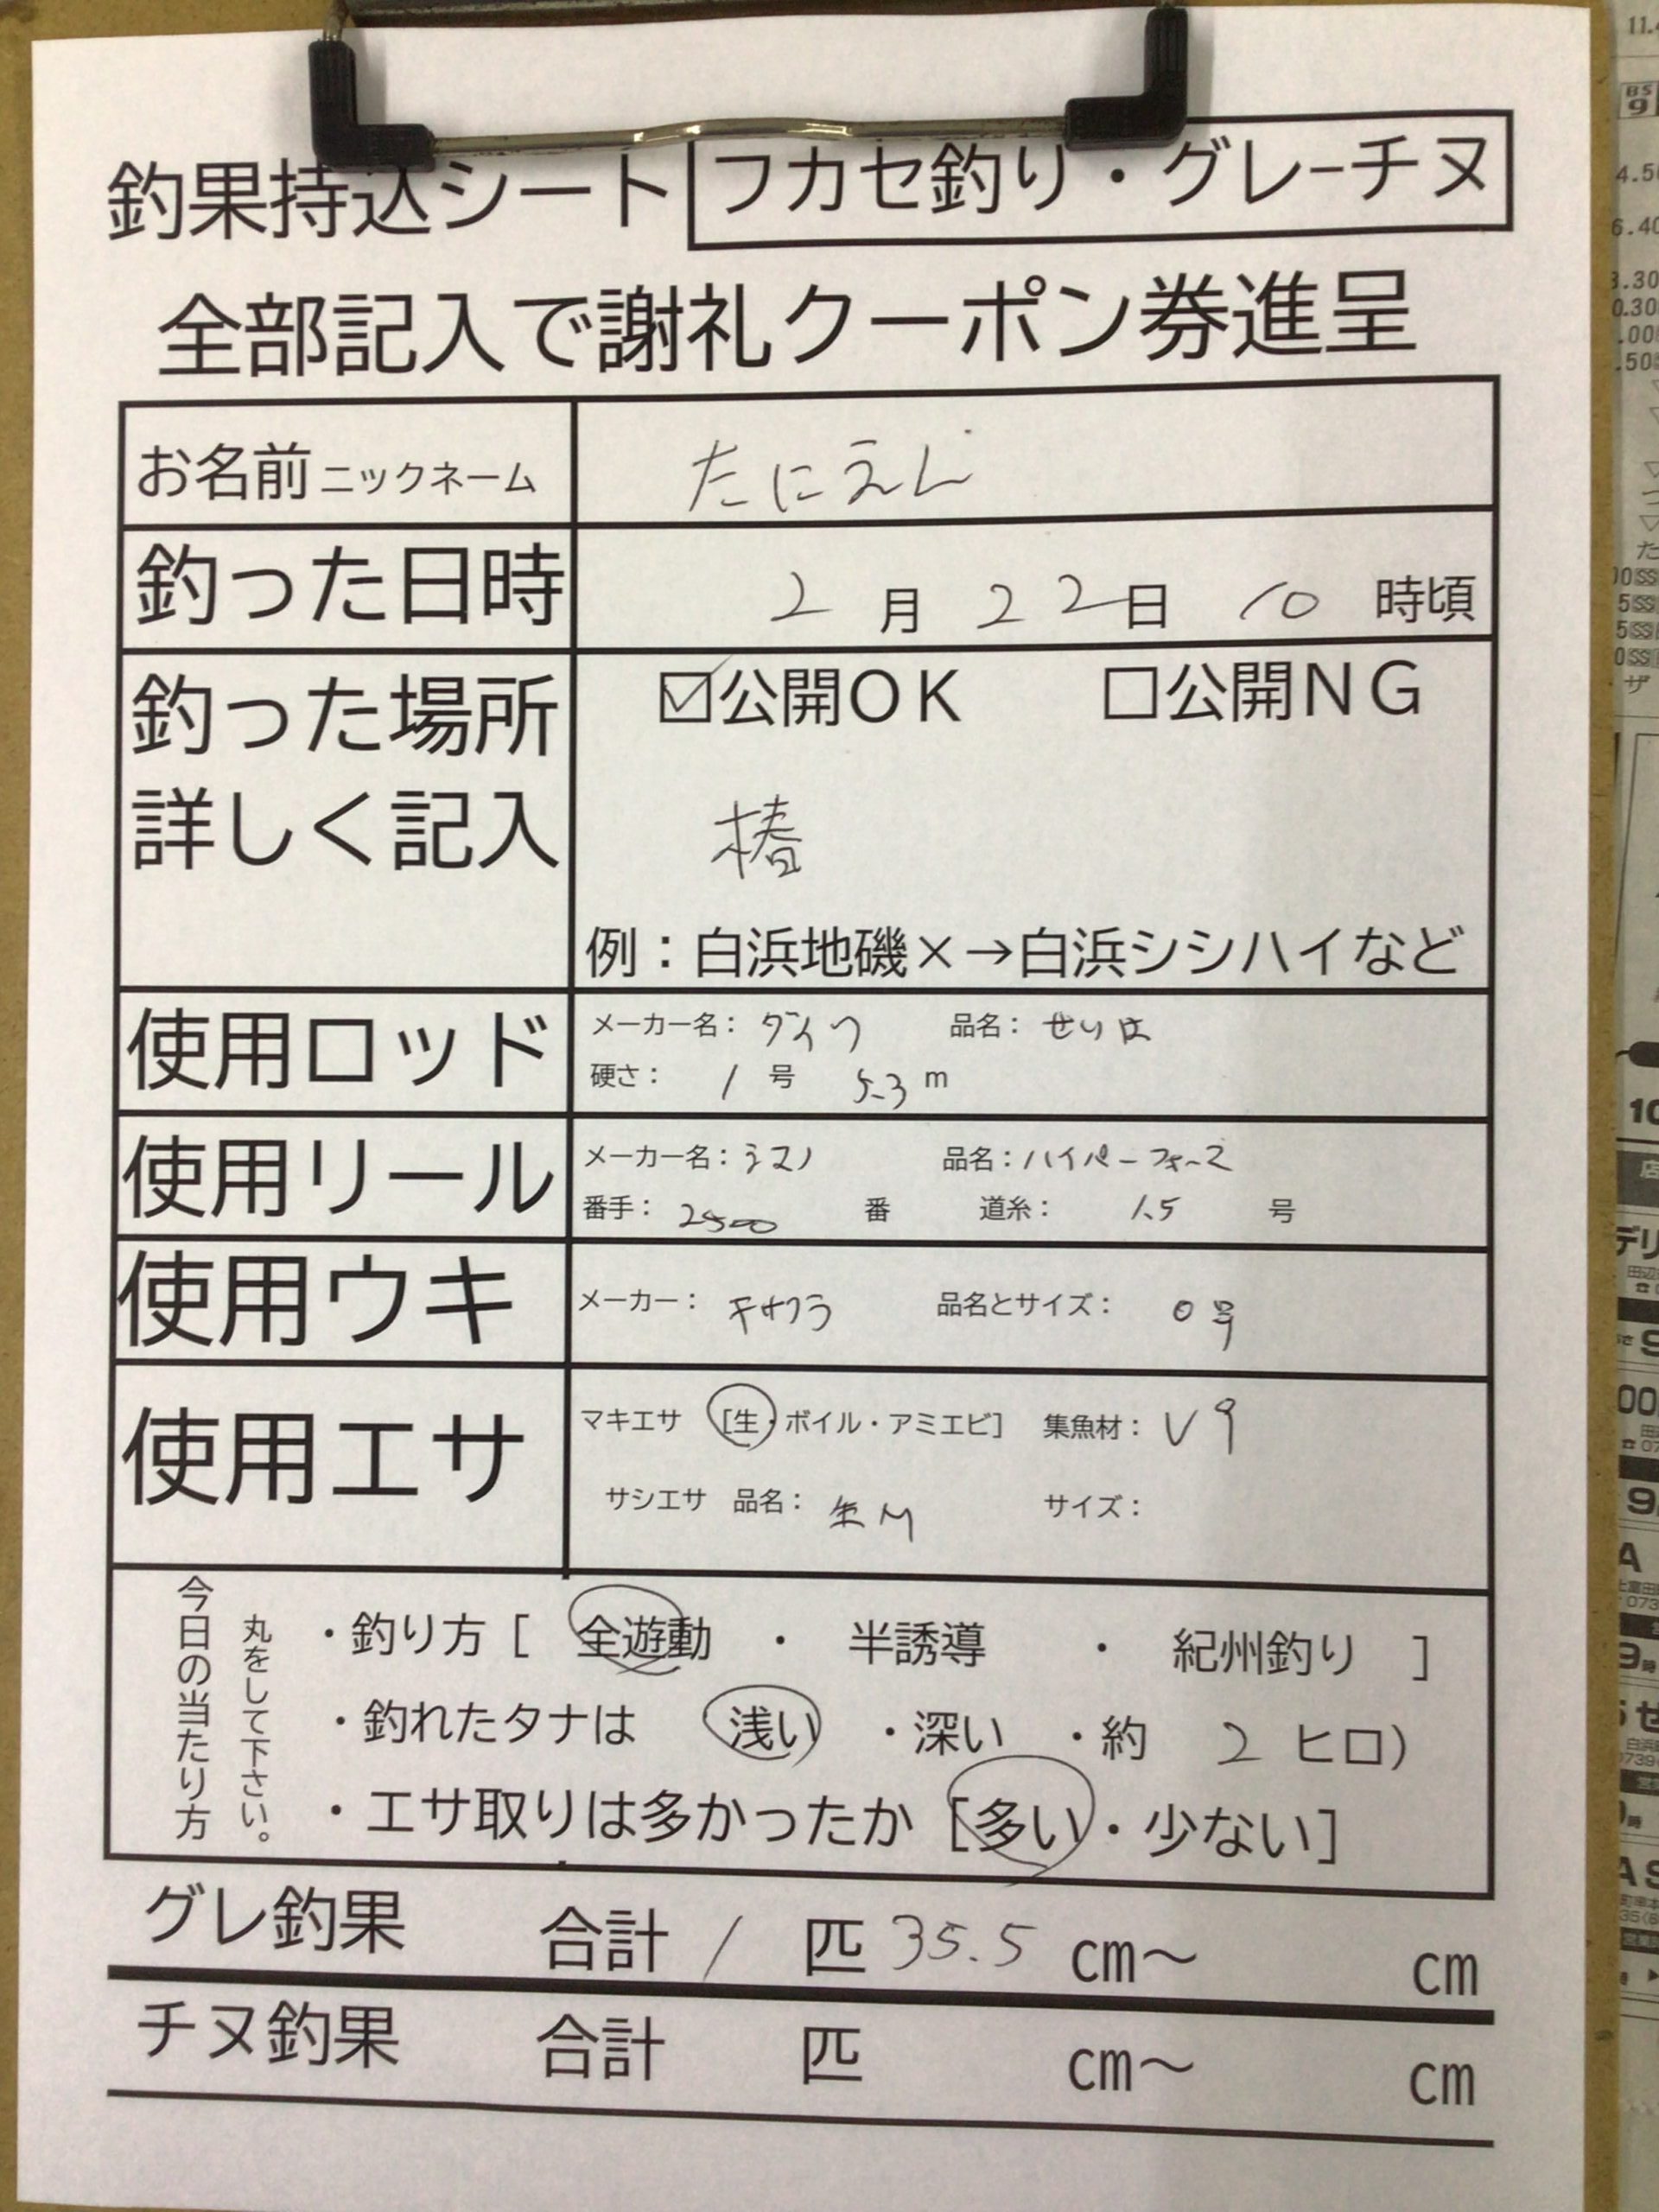 釣果持込シート フカセ釣り・グレーチヌ
全部記入で謝礼クーポン券進呈
お名前ニックネーム たにえん
釣った日時 2月22日 10時頃
釣った場所 ☑公開OK □公開NG
詳しく記入 椿
例：白浜地磯×→白浜シシハイなど
使用ロッド メーカー名： ダイワ 品名： せりは
硬さ： 1号 5.3m
使用リール メーカー名：シマノ 品名：ハイパーフォース
番手： 2500 番 道糸： 1.5 号
使用ウキ メーカー： キザクラ 品名とサイズ： 0号
使用エサ マキエサ [生・ボイル・アミエビ] 集魚材： V9
サシエサ 品名： 生M サイズ：
今日の当たり方
丸をして下さい。
・釣り方 [ 全遊動 ・ 半誘導 ・ 紀州釣り ]
・釣れたタナは 浅い ・深い ・約 2 ヒロ）
・エサ取りは多かったか [多い・少ない]
グレ釣果 合計 1 匹 35.5 cm～ cm
チヌ釣果 合計 匹 cm～ cm